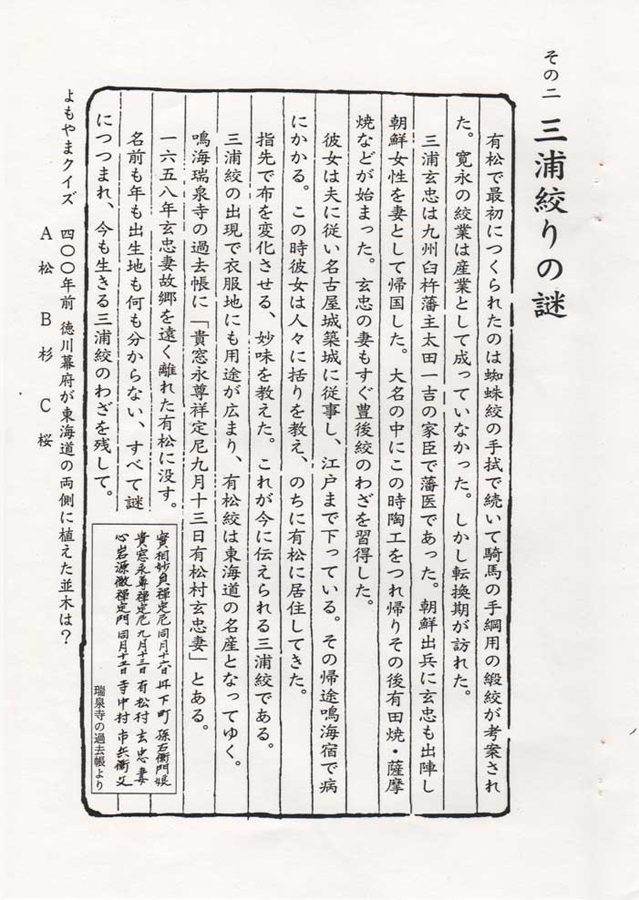 その二 三浦絞りの謎
有松で最初につくられたのは蜘蛛絞の手拭で続いて騎馬の手綱用の緞絞が考案され
た。寛永の絞業は産業として成っていなかった。しかし転換期が訪れた。
三浦玄忠は九州臼杵藩主太田一吉の家臣で藩医であった。朝鮮出兵に玄忠も出陣し
朝鮮女性を妻として帰国した。大名の中にこの時陶工をつれ帰りその後有田焼・薩摩
焼などが始まった。玄忠の妻もすぐ豊後絞のわざを習得した。
彼女は夫に従い名古屋城築城に従事し、江戸まで下っている。その帰途鳴海宿で病
にかかる。この時彼女は人々に括りを教え、のちに有松に居住してきた。
指先で布を変化させる、妙味を教えた。これが今に伝えられる三浦絞である。
三浦絞の出現で衣服地にも用途が広まり、有松絞は東海道の名産となってゆく。
鳴海瑞泉寺の過去帳に「貴窓永尊祥定尼九月十三日有松村玄忠妻」とある。
一六五八年玄忠妻故郷を遠く離れた有松に没す。
名前も年も出生地も何も分からない、すべて謎
につつまれ、今も生きる三浦絞のわざを残して。
實相妙貞禅定尼同月十六日丹下町孫右衛門娘
貴窓永尊禅定尼九月十三日有松村玄忠妻
心岩源徹禅定門同月十五日寺中村市兵衛父
瑞泉寺の過去帳より
よもやまクイズ 四〇〇年前 徳川幕府が東海道の両側に植えた並木は？
A 松 B 杉 C 桜